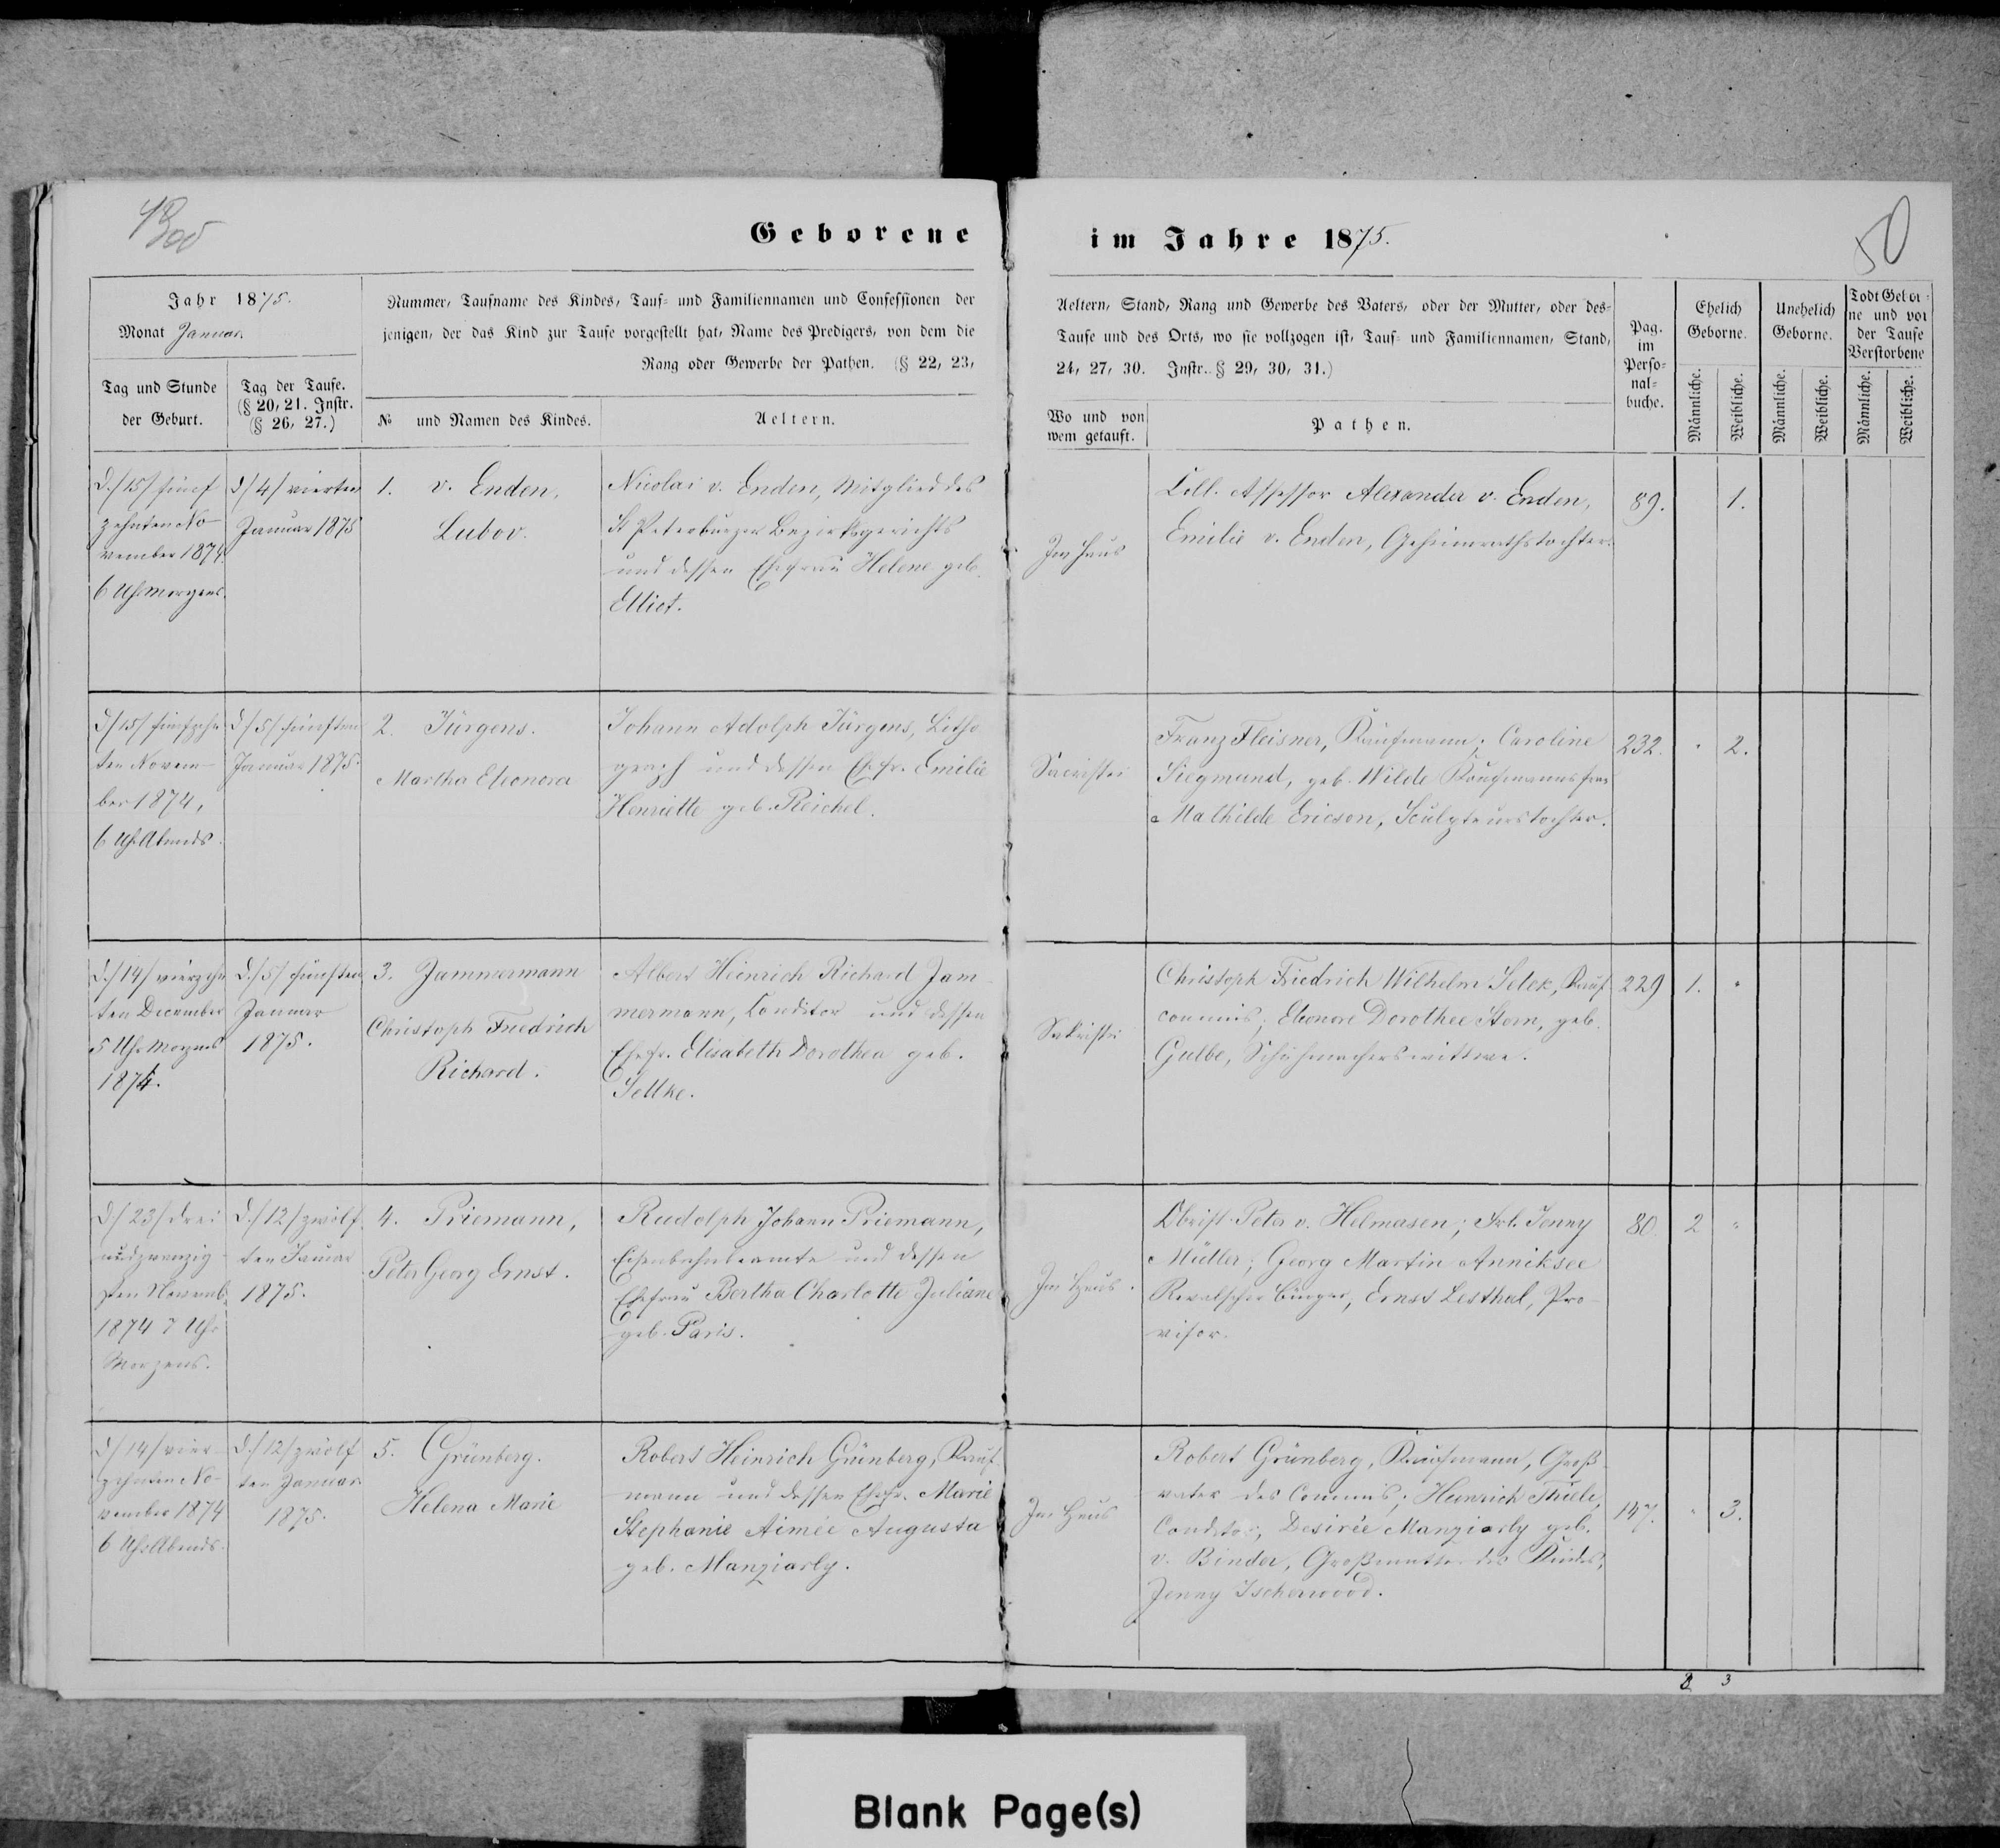 50
Geborene im Jahre 1875.
Jahr 1875.
Monat Januar.
Nummer, Taufname des Kindes, Tauf- und Familiennamen und Confessionen der
jenigen, der das Kind zur Taufe vorgestellt hat, Name des Predigers, von dem die
Rang oder Gewerbe der Pathen. (§ 22, 23,
Tag und Stunde
der Geburt.
Tag der Taufe.
(§ 20, 21. Instr.
(§ 26, 27.)
№ und Namen des Kindes.
Aeltern.
Aeltern, Stand, Rang und Gewerbe des Vaters, oder der Mutter, oder des-
Taufe und des Orts, wo sie vollzogen ist, Tauf- und Familiennamen, Stand,
24, 27, 30. Instr. § 29, 30, 31.)
Wo und von
wem getauft.
Pathen.
Pag.
im
Perso-
nal-
buche.
Ehelich
Geborne.
Unehelich
Geborne.
Todt Gebor-
ne und vor
der Taufe
Verstorbene
Männliche.
Weibliche.
Männliche.
Weibliche.
Männliche.
Weibliche.
d./15/ fünf
zehnten No-
vember 1874.
6 Uhr Morgens.
d/4/ vierten
Januar 1875
1. v. Enden,
Lubov.
Nicolai v. Enden, Mitglied des
St Peterburger Bezirksgerichts
und dessen Ehefrau Helene geb.
Elliot.
Im Haus
Coll. Assessor Alexander v. Enden,
Emilie v. Enden, Geheimrathstochter.
89.
1.
d/15/ fünfzehn
ten Novem-
ber 1874,
6 Uhr Abends.
d/5/ fünften
Januar 1875.
2. Jürgens.
Martha Eleonora
Johann Adolph Jürgens, Litho
graph und dessen Ehefr. Emilie
Henriette geb. Reichel.
Sacristei
Franz Fleisner, Kaufmann; Caroline
Siegmund, geb. Wilde Kaufmannsfrau
Mathilde Ericson, Sculpteurstochter.
232.
" 2.
d./14/ vierzehn
ten December
5 Uhr Morgens
1874.
d./5/ fünften
Januar
1875.
3. Jammermann
Christoph Friedrich
Richard.
Albert Heinrich Richard Jam
mermann, Conditor und dessen
Ehefr. Elisabeth Dorothea geb.
Sakristei
Christoph Friedrich Wilhelm Selek, Kauf
commis; Eleonore Dorothee Stern, geb.
Gulbe, Schuhmacherswittwe.
229
1. "
d/23/ drei
undzwanzig
sten Novemb.
1874 7 Uhr
Morgens.
d./12/ zwölf
ten Januar
1875.
4. Priemann,
Peter Georg Ernst.
Rudolph Johann Priemann,
Eisenbahnbeamte und dessen
Ehefrau Bertha Charlotte Juliane
geb. Paris.
Im Haus.
Obrist Peter v. Helmasen; Frl. Jenny
Müller; Georg Martin Anniksee
Revalscher Bürger, Ernst Lesthal, Pro-
visor.
80
2 "
d/14/ vier-
zehnten No-
vember 1874
6 Uhr Abends.
d./12/ zwölf
ten Januar
1875.
5. Grünberg.
Helena Marie
Robert Heinrich Grünberg, Kauf
mann und dessen Ehefr. Marie
Stephanie Aimée Augusta
geb. Manziarly.
Im Haus
Robert Grünberg, Kaufmann, Groß
vater des Commis; Heinrich Thiele,
Conditor, Desirée Manziarly geb.
v. Binder, Großmutter des Kindes,
Jenny Ischerwood.
147.
" 3.
2 3
Blank Page(s)